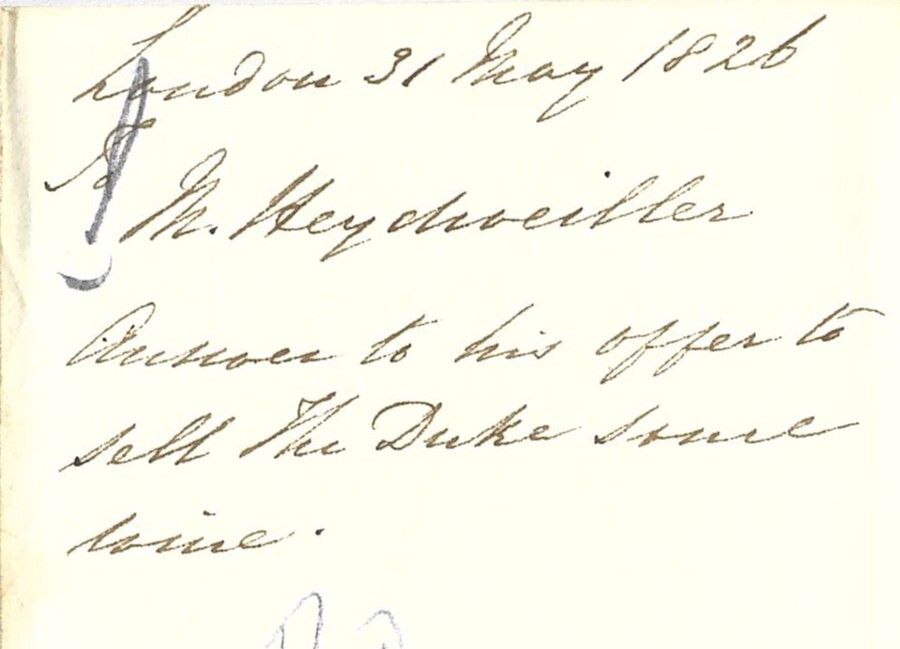 London 31 May 1826
To
M. Heydweiller
Answer to his offer to
sell The Duke some
wine.